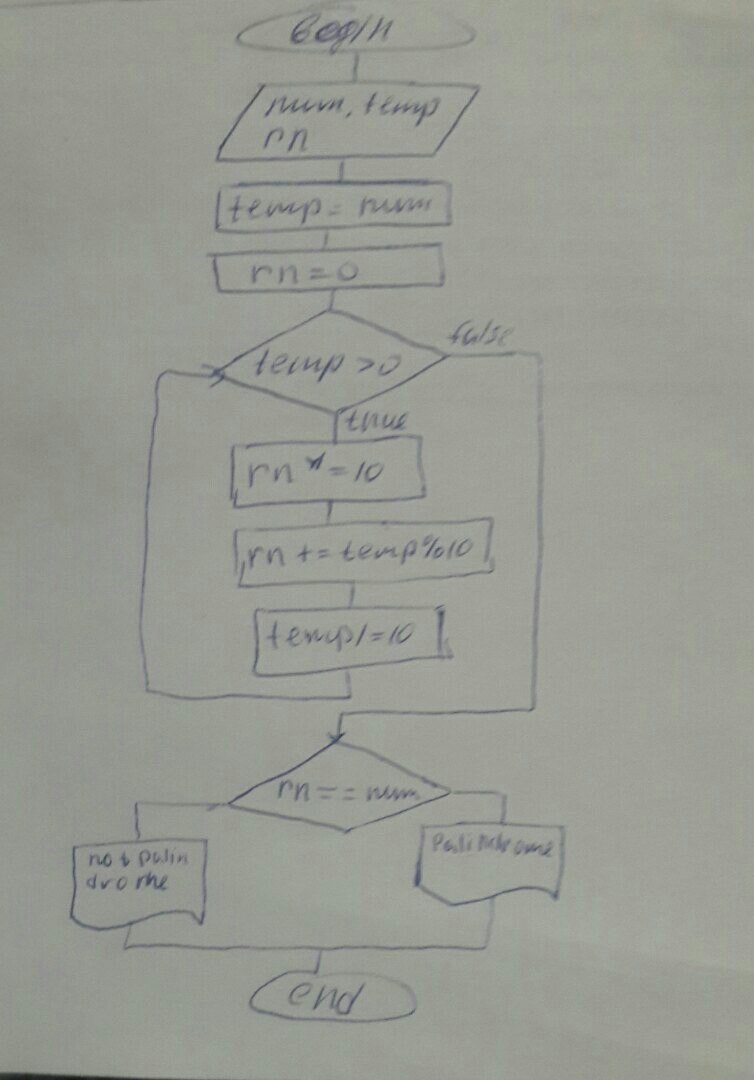 begin
num, temp
rn
temp = num
rn = 0
false
temp > 0
true
rn *= 10
rn += temp%10
temp/=10
rn == num
not palin
drome
Palindrome
end